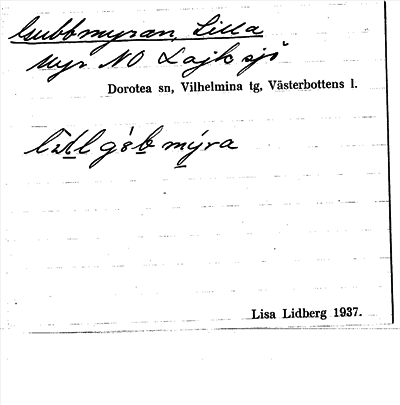 Gubbmyran, Lilla
Myr NO Lajksjö
Dorotea sn, Vilhelmina tg, Västerbottens l.
mýra
Lisa Lidberg 1937.